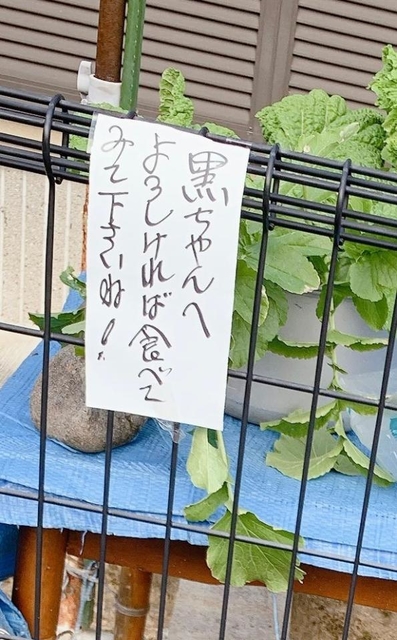 黒ちゃんへ
よろしければ食べて
みて下さいね!